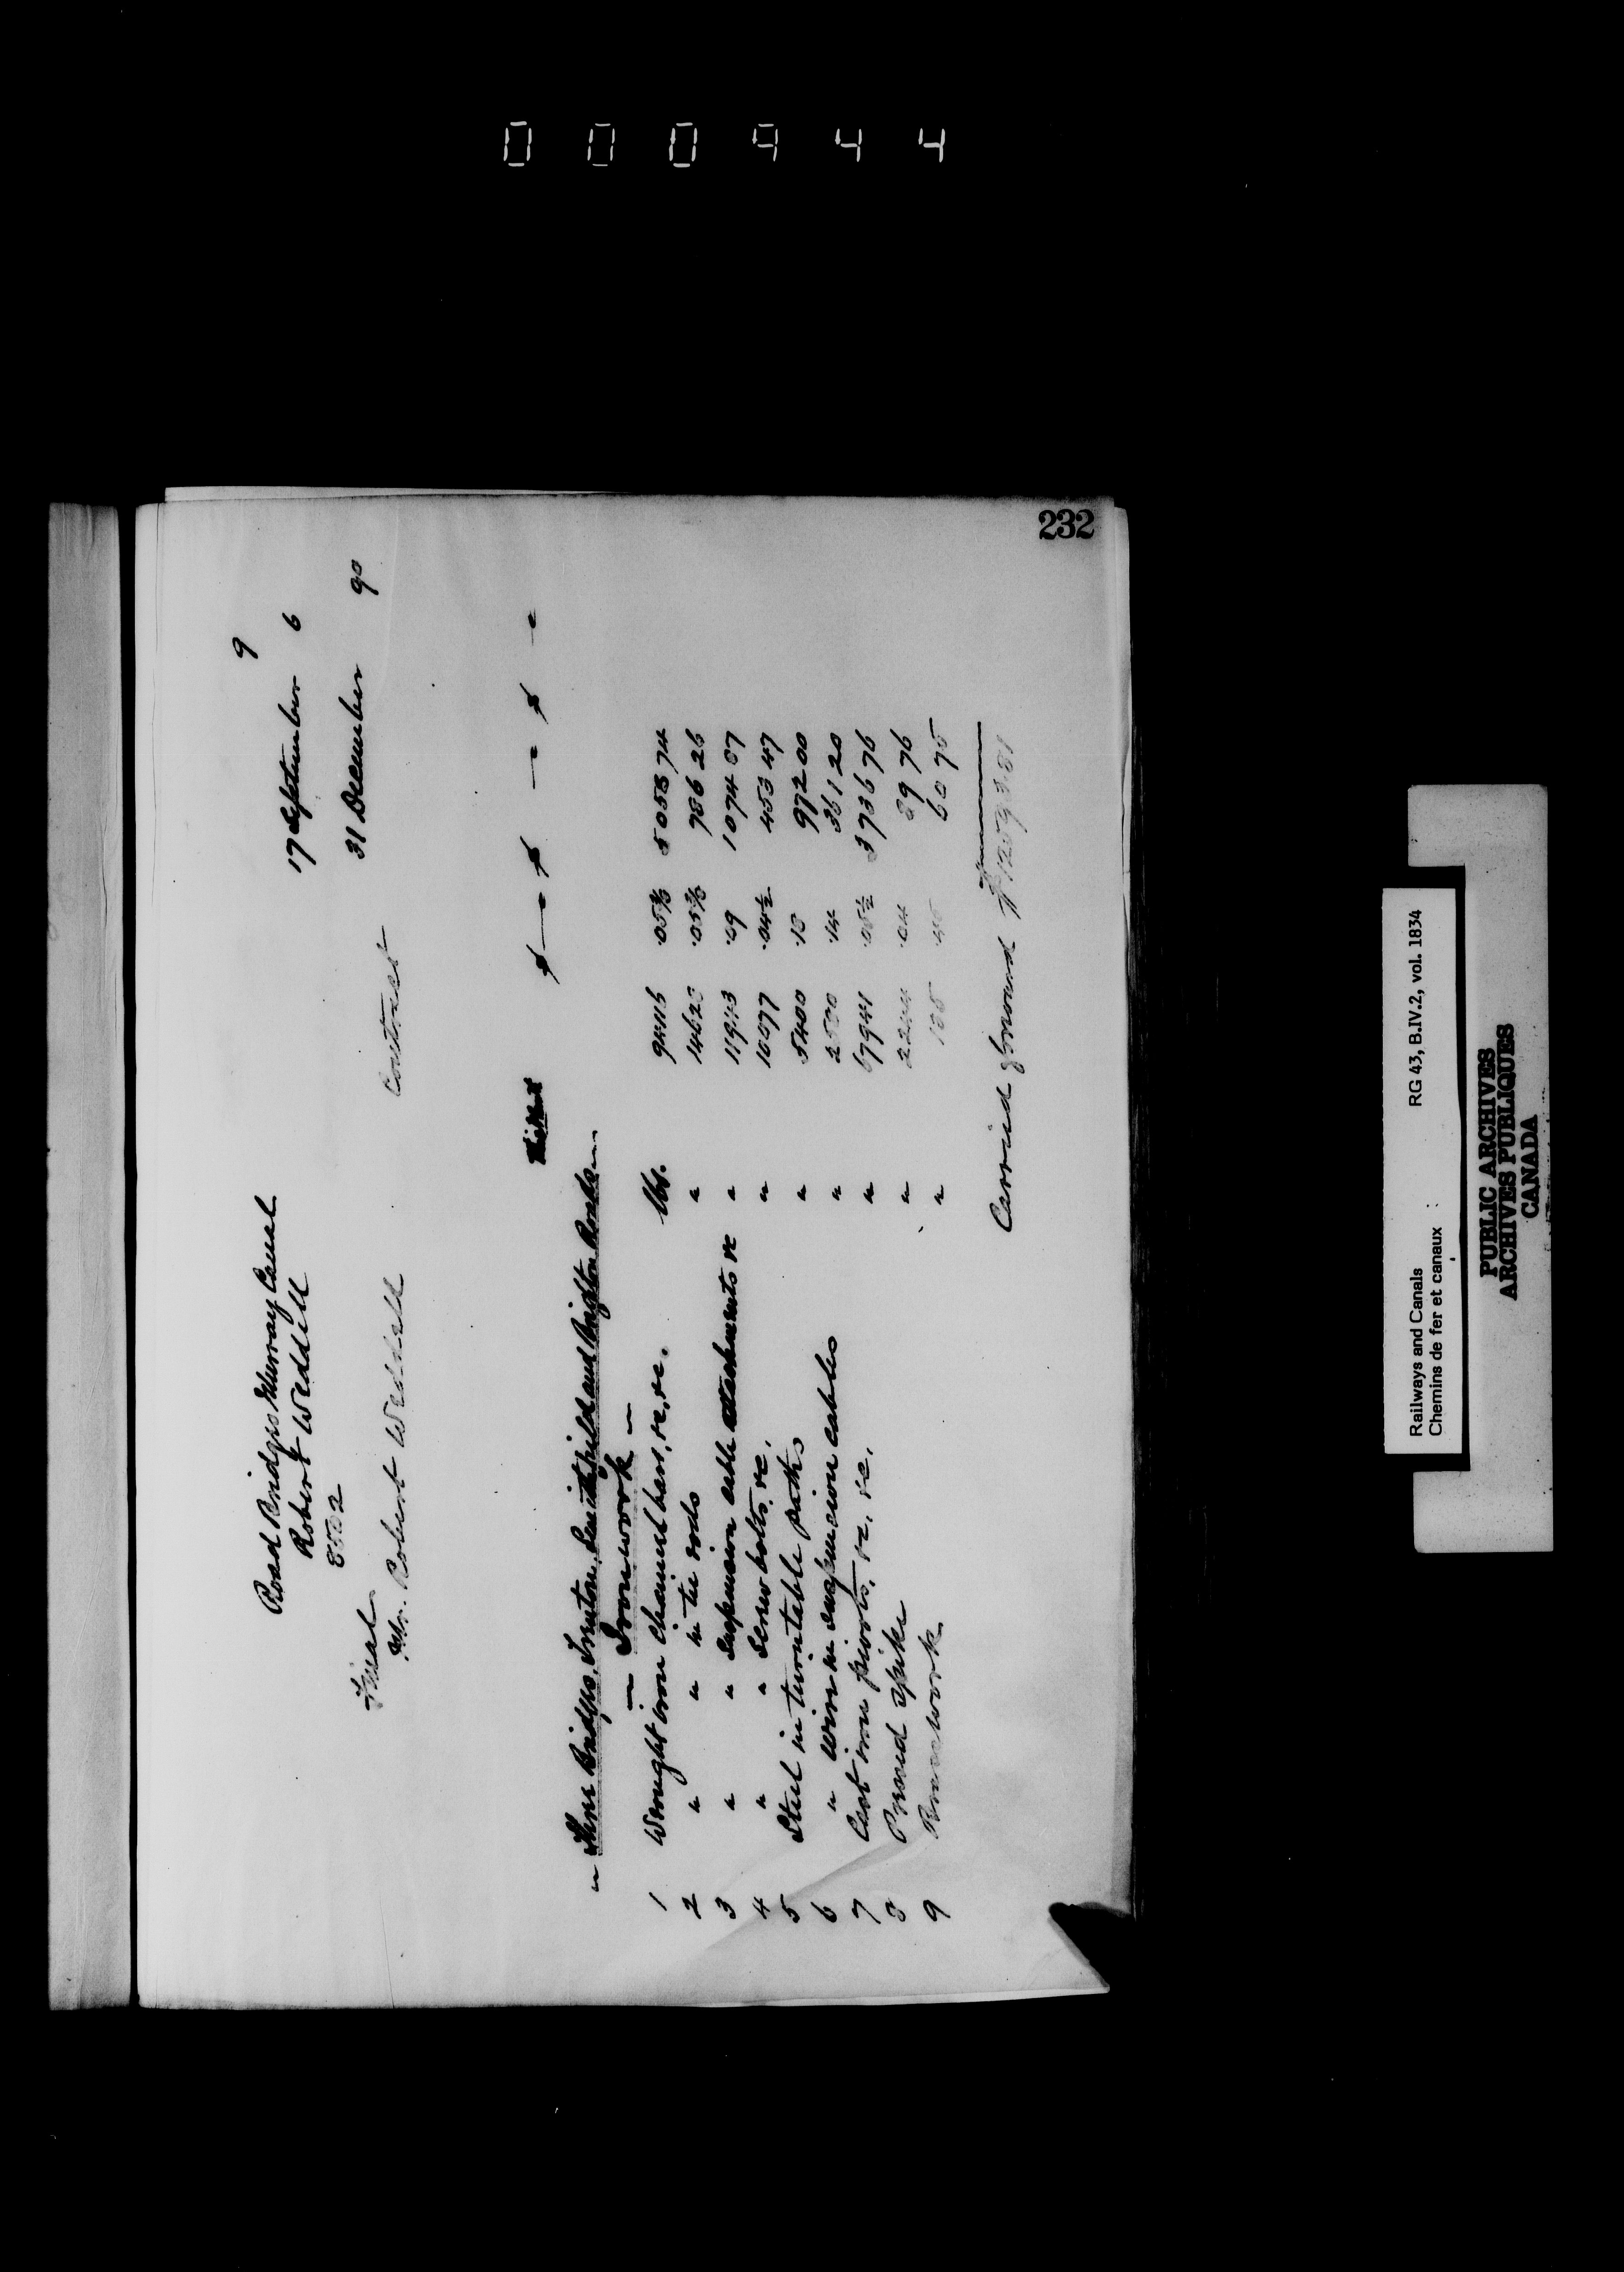 000944
232
9
Road Bridges Murray Canal
17 September 6
Robert Weddell
8502
31 December 90
Final
Contract
Mr. Robert Weddell
$ — c $ — c $ — c
Three Bridges, Trenton, Smithfield and Brighton Roads
— Ironwork —
1 Wrought iron Channel bars, &c, &c. lbs. 94116 .05 3/8 5058 74
2 " " in tie rods " 14628 .05 3/8 786 26
3 " " Suspension cable attachments &c " 11943 .09 1074 87
4 " " Screw bolts, &c. " 10077 .04½ 453 47
5 Steel in turntable paths " 5400 .18 972 00
6 " wire in suspension cables " 2580 .14 361 20
7 Cast iron pivots, &c, &c. " 67941 .05½ 3736 76
8 Pressed spike " 2244 .04 89 76
9 Brass work " 135 .45 60 75
Carried forward $12593 81
Railways and Canals RG 43, B.IV.2, vol. 1834
Chemins de fer et canaux :
PUBLIC ARCHIVES
ARCHIVES PUBLIQUES
CANADA